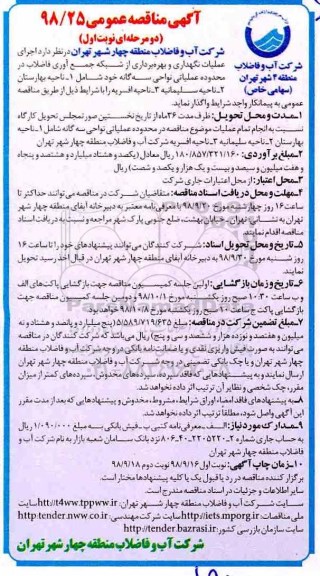 آگهی مناقصه عمومی ۹۸/۲۵
(دو مرحله‌ای نوبت اول)
شرکت آب و فاضلاب
منطقه ۴ شهر تهران
(سهامی خاص)
شرکت آب و فاضلاب منطقه چهار شهر تهران در نظر دارد اجرای
عملیات نگهداری و بهره‌برداری از شبکه جمع آوری فاضلاب در
محدوده عملیاتی نواحی سه گانه خود شامل ۱ـ ناحیه بهارستان
۲ـ ناحیه سلیمانیه ۳ـ ناحیه افسریه را با شرایط ذیل از طریق مناقصه
عمومی به پیمانکار واجد شرایط واگذار نماید.
۱ـ مدت و محل تحویل: ظرف مدت ۳۶ ماه از تاریخ نخستین صورتمجلس تحویل کارگاه
نسبت به انجام تمام عملیات موضوع مناقصه در محدوده عملیاتی نواحی سه گانه شامل ۱ـ ناحیه
بهارستان ۲ـ ناحیه سلیمانیه ۳ـ ناحیه افسریه شرکت آب و فاضلاب منطقه چهار شهر تهران
۲ـ مبلغ برآوردی: ۱۸۰/۸۵۷/۳۲۱/۱۶۰ ریال معادل (یکصد و هشتاد میلیارد و هشتصد و پنجاه
و هفت میلیون و سیصد و بیست و یک هزار و یکصد و شصت) ریال
۳ـ محل اعتبار: از محل اعتبارات جاری شرکت
۴ـ مهلت و محل دریافت اسناد مناقصه: متقاضیان شرکت در مناقصه می‌توانند حداکثر تا
ساعت ۱۶ روز چهارشنبه مورخ ۹۸/۹/۲۰ با معرفی‌نامه معتبر به دبیرخانه آبفای منطقه چهار شهر
تهران به نشانی تهران، خیابان بهشت، ضلع جنوبی پارک شهر مراجعه و نسبت به دریافت اسناد
مناقصه اقدام نمایند.
۵ـ تاریخ و محل تحویل اسناد: شرکت کنندگان می‌توانند پیشنهادهای خود را تا ساعت ۱۶
روز شنبه مورخ ۹۸/۹/۳۰ به دبیرخانه آبفای منطقه چهار شهر تهران در قبال اخذ رسید تحویل
نمایند.
۶ـ تاریخ و زمان بازگشایی: اولین جلسه کمیسیون مناقصه جهت بازگشایی پاکت‌های الف
و ب ساعت ۱۰:۳۰ صبح روز یکشنبه مورخ ۹۸/۱۰/۱ و دومین جلسه کمیسیون مناقصه جهت
بازگشایی پاکت ج ساعت ۱۰ صبح روز یکشنبه مورخ ۹۸/۱۰/۸ خواهد بود.
۷ـ مبلغ تضمین شرکت در مناقصه: مبلغ ۵/۵۸۹/۷۱۹/۶۳۵ (پنج میلیارد و پانصد و هشتاد و نه
میلیون و هفتصد و نوزده هزار و ششصد و سی و پنج) ریال می‌باشد که شرکت کنندگان در مناقصه
می‌توانند به صورت فیش واریزی نقدی و یا ضمانت‌نامه بانکی در وجه شرکت آب و فاضلاب منطقه
چهار شهر تهران و یا چک بانکی تضمینی در وجه شرکت آب و فاضلاب منطقه چهار شهر تهران
ارسال نمایند و به پیشنهادهایی که فاقد سپرده، سپرده‌های مخدوش، سپرده‌های کمتر از میزان
مقرر، چک شخصی و نظایر آن ترتیب اثر داده نخواهد شد.
۸ـ به پیشنهادهای فاقد امضاء اوراق شرایط، مشروط، مخدوش و پیشنهادهایی که بعد از مدت مقرر
این آگهی واصل شود، مطلقا ترتیب اثر داده نخواهد شد.
۹ـ مدارک مورد نیاز: الف. معرفی‌نامه کتبی ب. فیش بانکی به مبلغ ۱/۰۹۰/۰۰۰ ریال
به حساب جاری شماره ۲-۲۲۰۵۲۲۰-۴۰-۸۰۶ نزد بانک سامان شعبه بازار به نام شرکت آب و
فاضلاب منطقه چهار شهر تهران.
۱۰ـ زمان چاپ آگهی: نوبت اول ۹۸/۹/۱۶ نوبت دوم ۹۸/۹/۱۸
برگزار کننده مناقصه در رد یا قبول یک یا کلیه پیشنهادها مختار است.
سایر اطلاعات و جزئیات در اسناد مناقصه مندرج است.
سایت شرکت آب و فاضلاب منطقه چهار شهر تهران: http://t4ww.tpww.ir سایت
ملی مناقصات: http://iets.mporg.ir سایت شرکت مهندسی: http:tender.nww.co.ir
سایت سازمان بازرسی کشور: http://tender.bazrasi.ir
شرکت آب و فاضلاب منطقه چهار شهر تهران